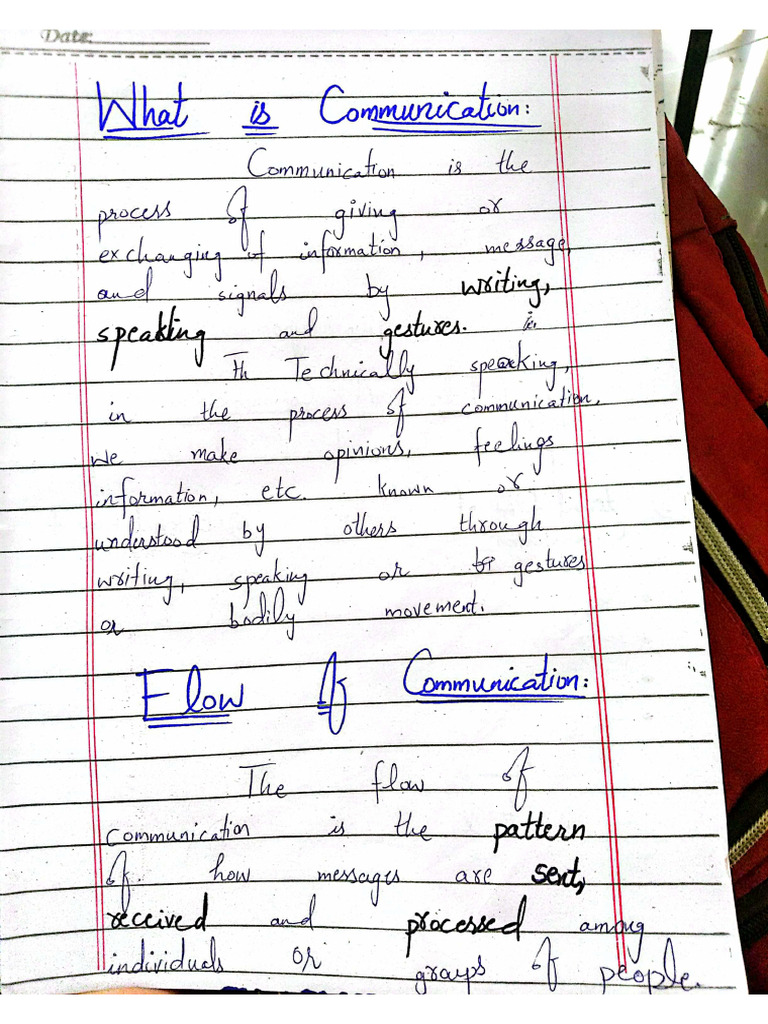 Date:
What is Communication:
Communication is the
process of giving or
exchanging of information, message,
and signals by writing,
speaking and gestures.
Th Technically speaking,
in the process of communication,
we make opinions, feelings
information, etc. known or
understood by others through
writing, speaking or gestures
or bodily movement.
Flow of Communication:
The flow of
communication is the pattern
of how messages are sent,
received and processed among
individuals or groups of people.